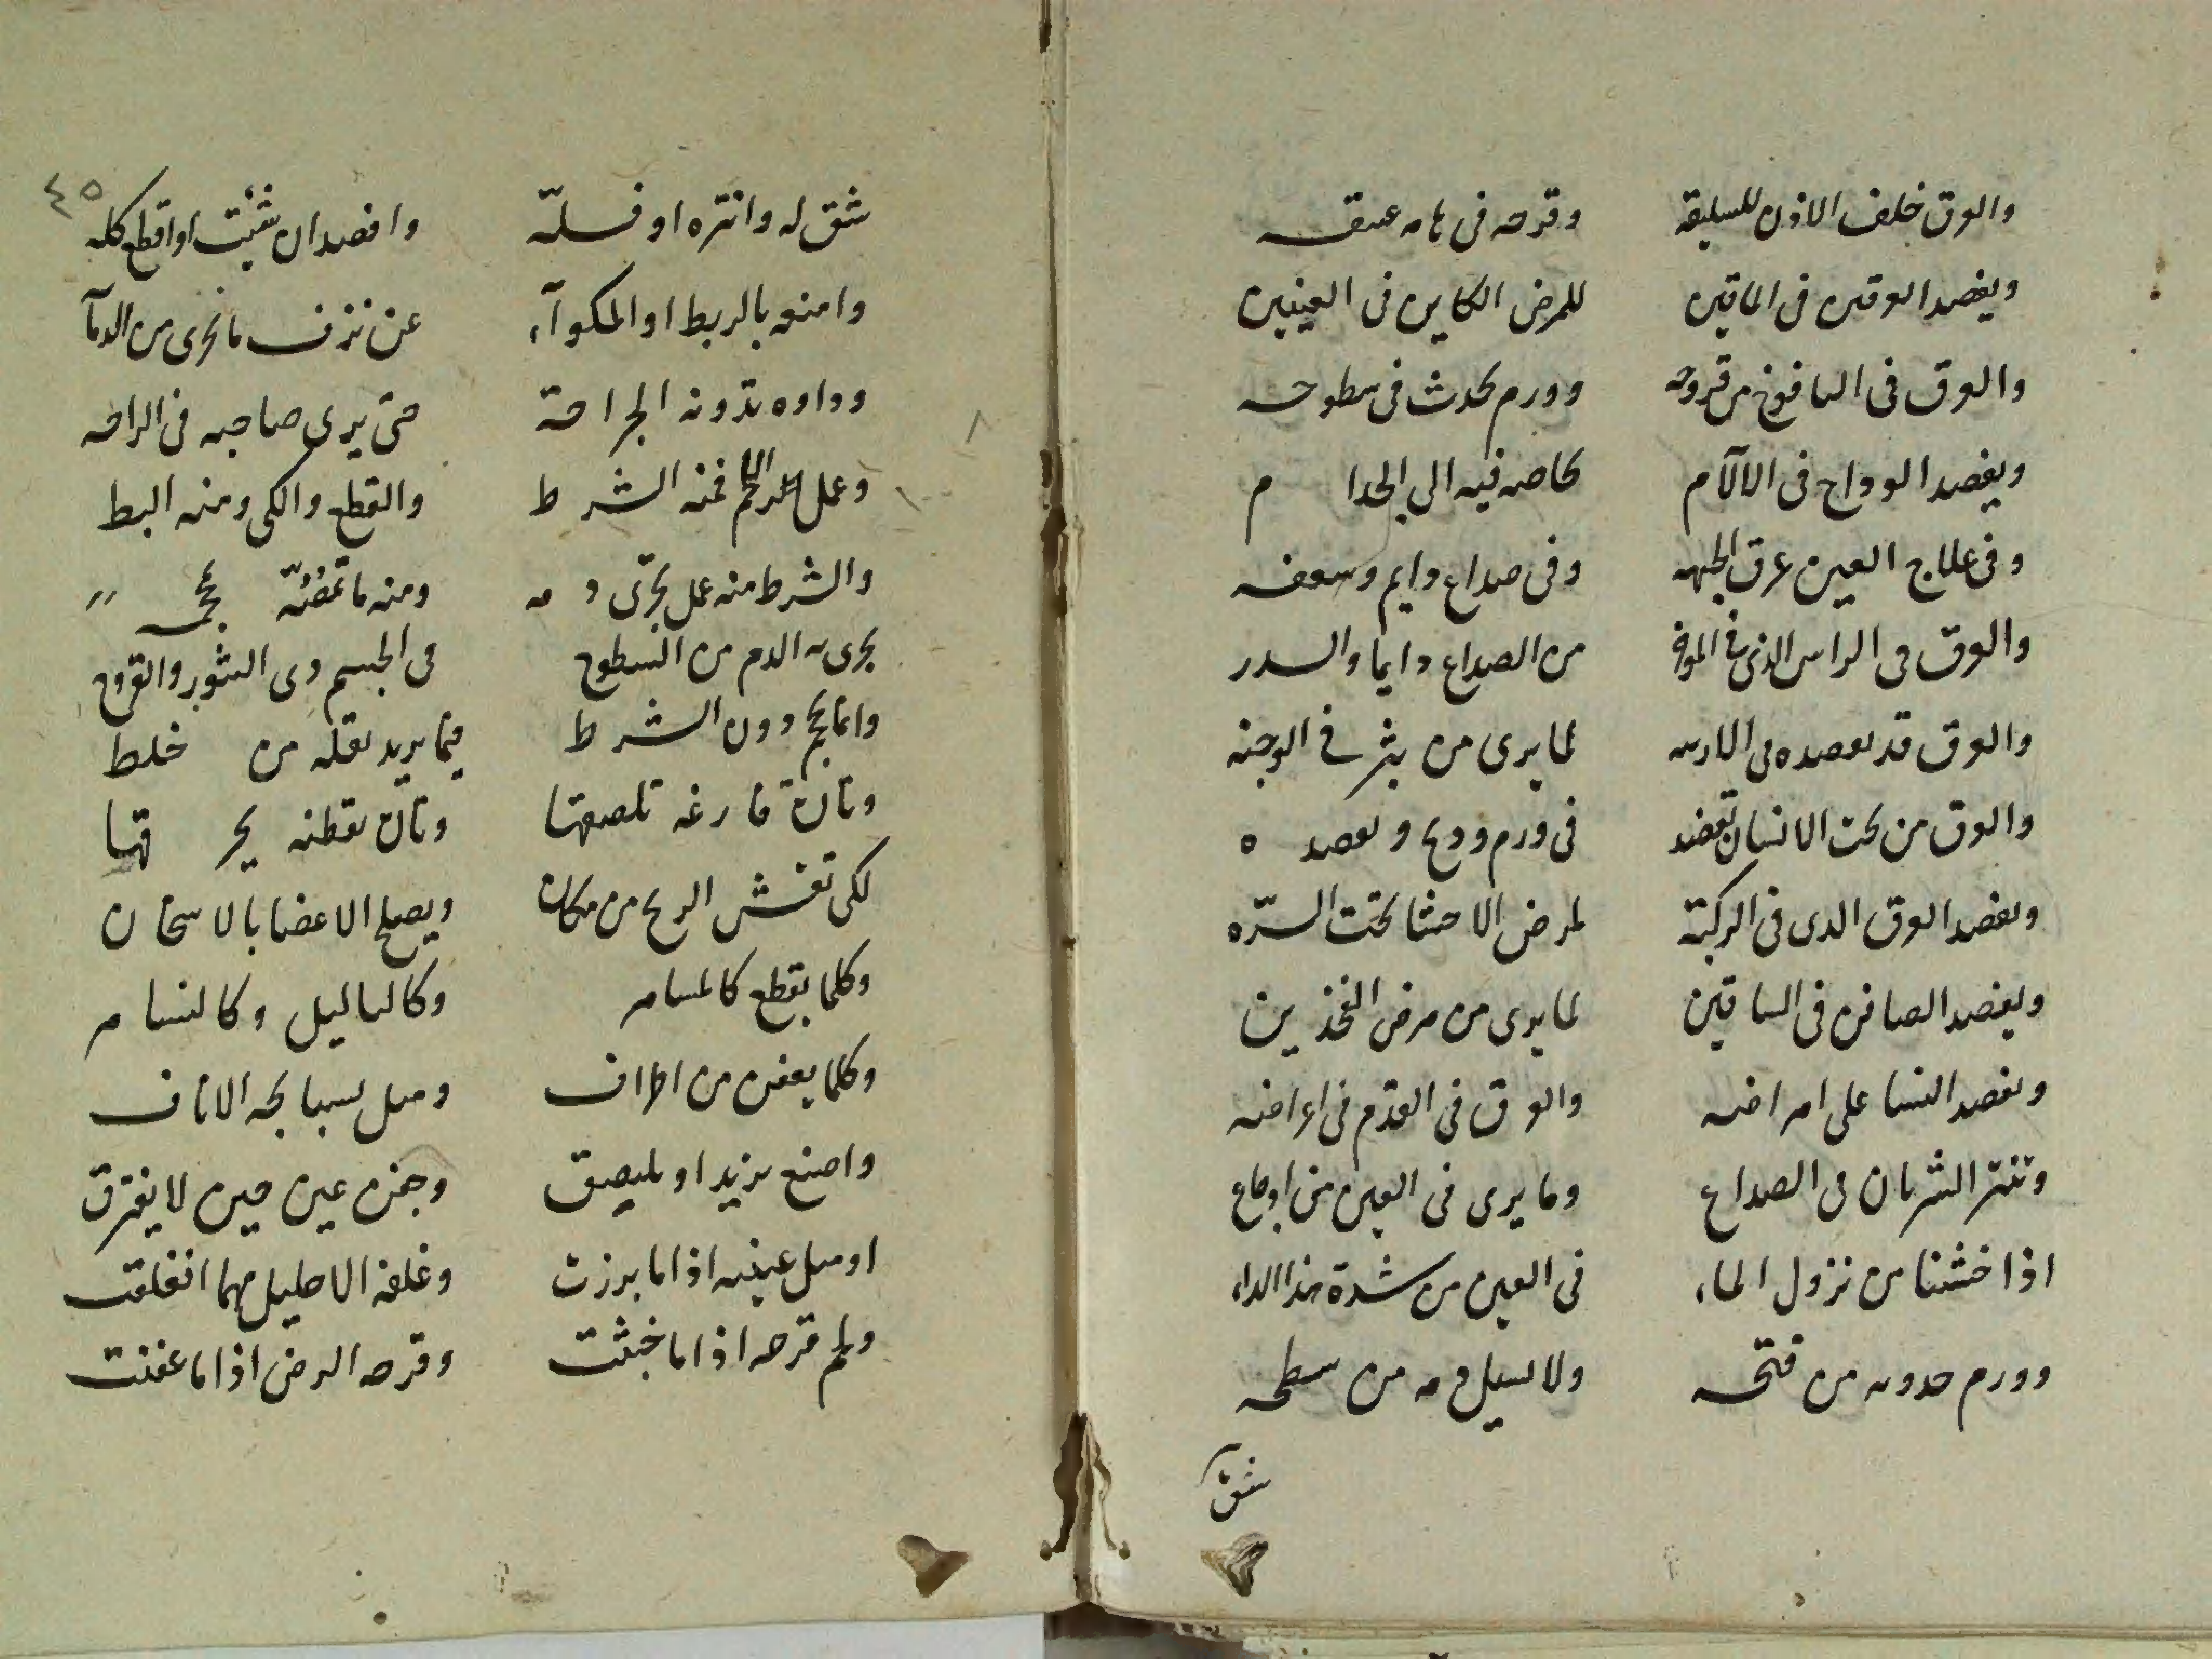 والعرق خلف الاذن للسليقه وقرحه فى هامه عميقه
ويفصد العرقين فى الماقين للمرض الكاين فى العينين
والعرق فى اليافوخ من قروحه وورم يحدث فى سطوحه
ويفصد الوداج فى الالآم خاصه فيه الى الجذا م
وفى علاج العين عرق الجبهه وفى صداع دايم وسعفه
والعرق فى الراس الذى فى الموخر من الصداع دايما والسدر
والعرق قد تفصده فى الارنبه لما يرى من بثر فى الوجنه
والعرق من تحت اللسان تفصد فى ورم ودبح وتفصد ه
وتفصد العرق الدى فى الركبة لمرض الاحشا تحت السرّه
ويفصد الصافن فى الساقين لما يرى من مرض الفخذ ين
وتفصد النسا على امراضه والعرق فى القدم فى اعراضه
وتنتر الشريان فى الصداع وما يرى فى العين من اوجاع
اذا خشنا من نزول الماء فى العين من شدة هذا الداء
وورم حدوثه من فتحه ولا يسيل دمه من سطحه
شق
٤٥
شق له وانتره او فسلّه وافصد ان شئت او اقطع كله
وامنعه بالربط او المكوآء عن نزف ما تجرى من الدمآ
وداوه بدونه الجراحة حتى يرى صاحبه فى الراحه
وعمل اللحم فمنه الشر ط والقطع والكى ومنه البط
والشرط منه عمل يجرى د مه ومنه ما تمصّه محجمه
يجرى به الدم من السطوح فى الجسم دى البثور والقروح
وانما يحجم دون الشر ط فيما يريد نقله من خلط
وتان فارغه تلصقها وتان بقطنه يحر قها
لكى تفش الريح من مكان ويصلح الاعضا بالاسخان
وكلما يقطع كالمسامر وكالثاليل وكالنسا مر
وكلما يعفن من اطراف ومثل الاناف
واصنع يزيد او يلتصق وجفن عين حين لا يفترق
او مثل عينيه اذا ما برزت وغلفه الاحليل مهما انغلقت
ولحم قرحه اذا ما خبثت وقرحه الرض اذا ما عفنت